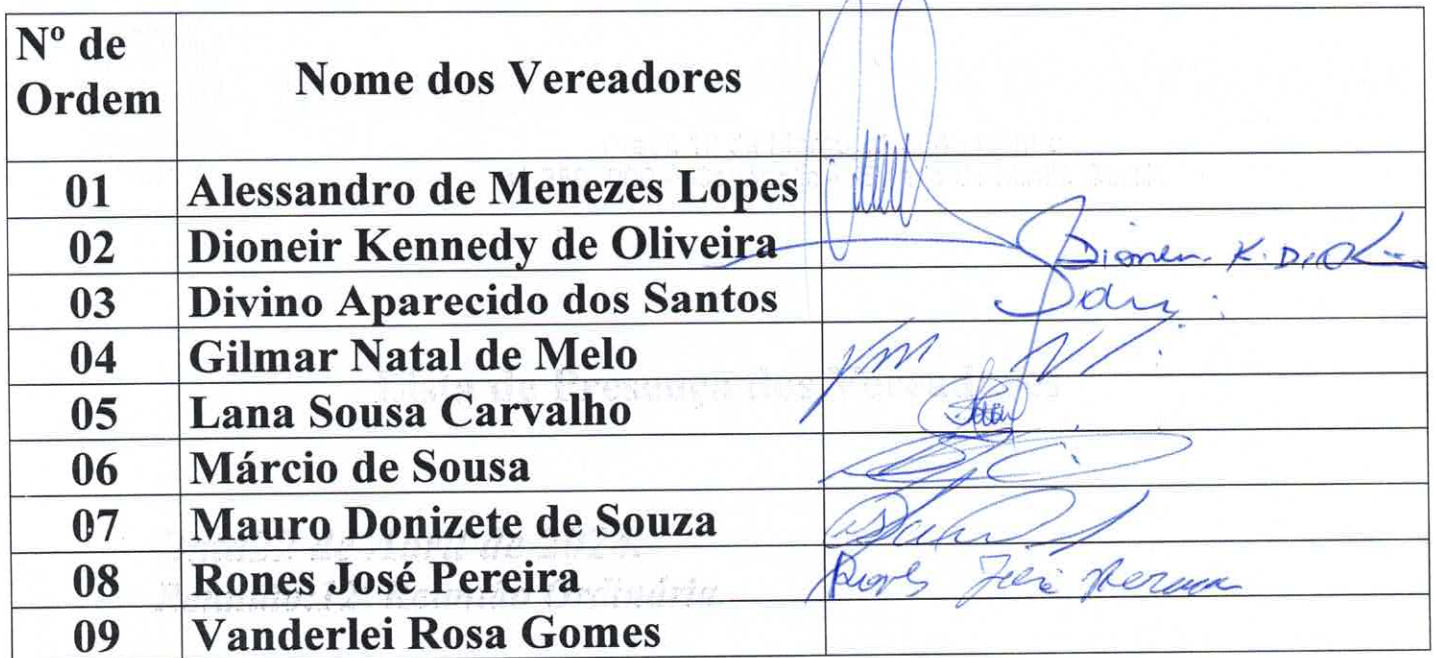 Nº de
Ordem
Nome dos Vereadores
01 Alessandro de Menezes Lopes
02 Dioneir Kennedy de Oliveira
03 Divino Aparecido dos Santos
04 Gilmar Natal de Melo
05 Lana Sousa Carvalho
06 Márcio de Sousa
07 Mauro Donizete de Souza
08 Rones José Pereira Rones José Pereira
09 Vanderlei Rosa Gomes